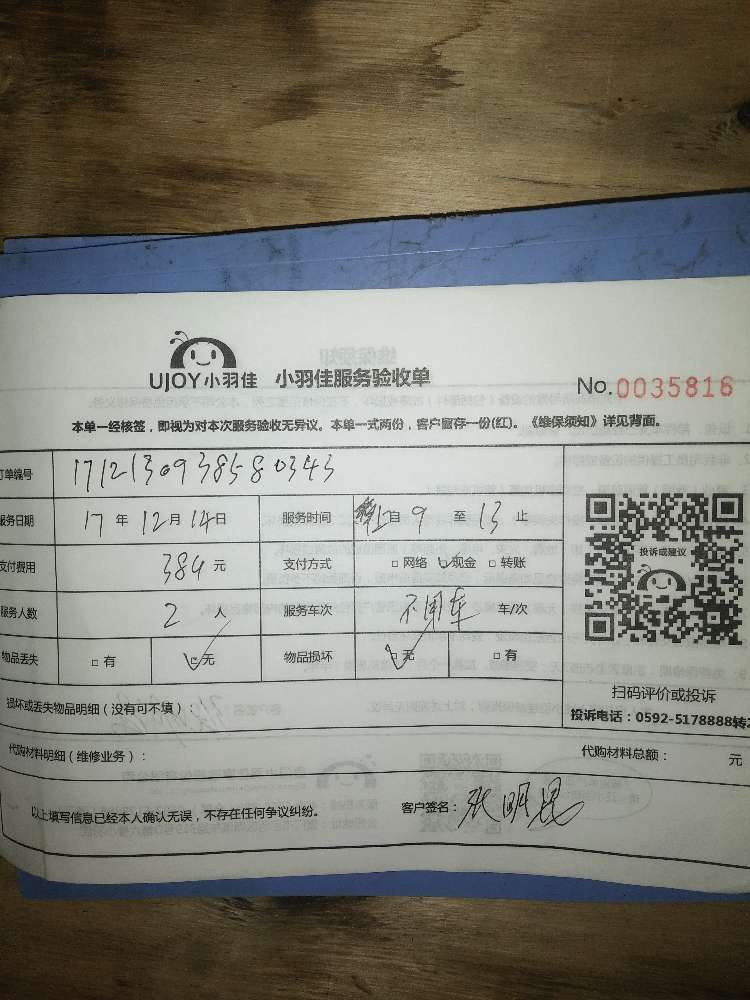 UJOY小羽佳 小羽佳服务验收单
No.0035816
本单一经核签，即视为对本次服务验收无异议。本单一式两份，客户留存一份(红)。《维保须知》详见背面。
订单编号 1712130938580343
服务日期 17 年 12 月 14 日 服务时间 自 9 至 13 止
支付费用 384 元 支付方式 □ 网络 ☑ 现金 □ 转账
服务人数 2 人 服务车次 不用车 车/次
物品丢失 □ 有 ☑ 无 物品损坏 ☑ 无 □ 有
投诉或建议
扫码评价或投诉
投诉电话：0592-5178888转2
损坏或丢失物品明细（没有可不填）：
代购材料明细（维修业务）： 代购材料总额： 元
以上填写信息已经本人确认无误，不存在任何争议纠纷。 客户签名：张明昆